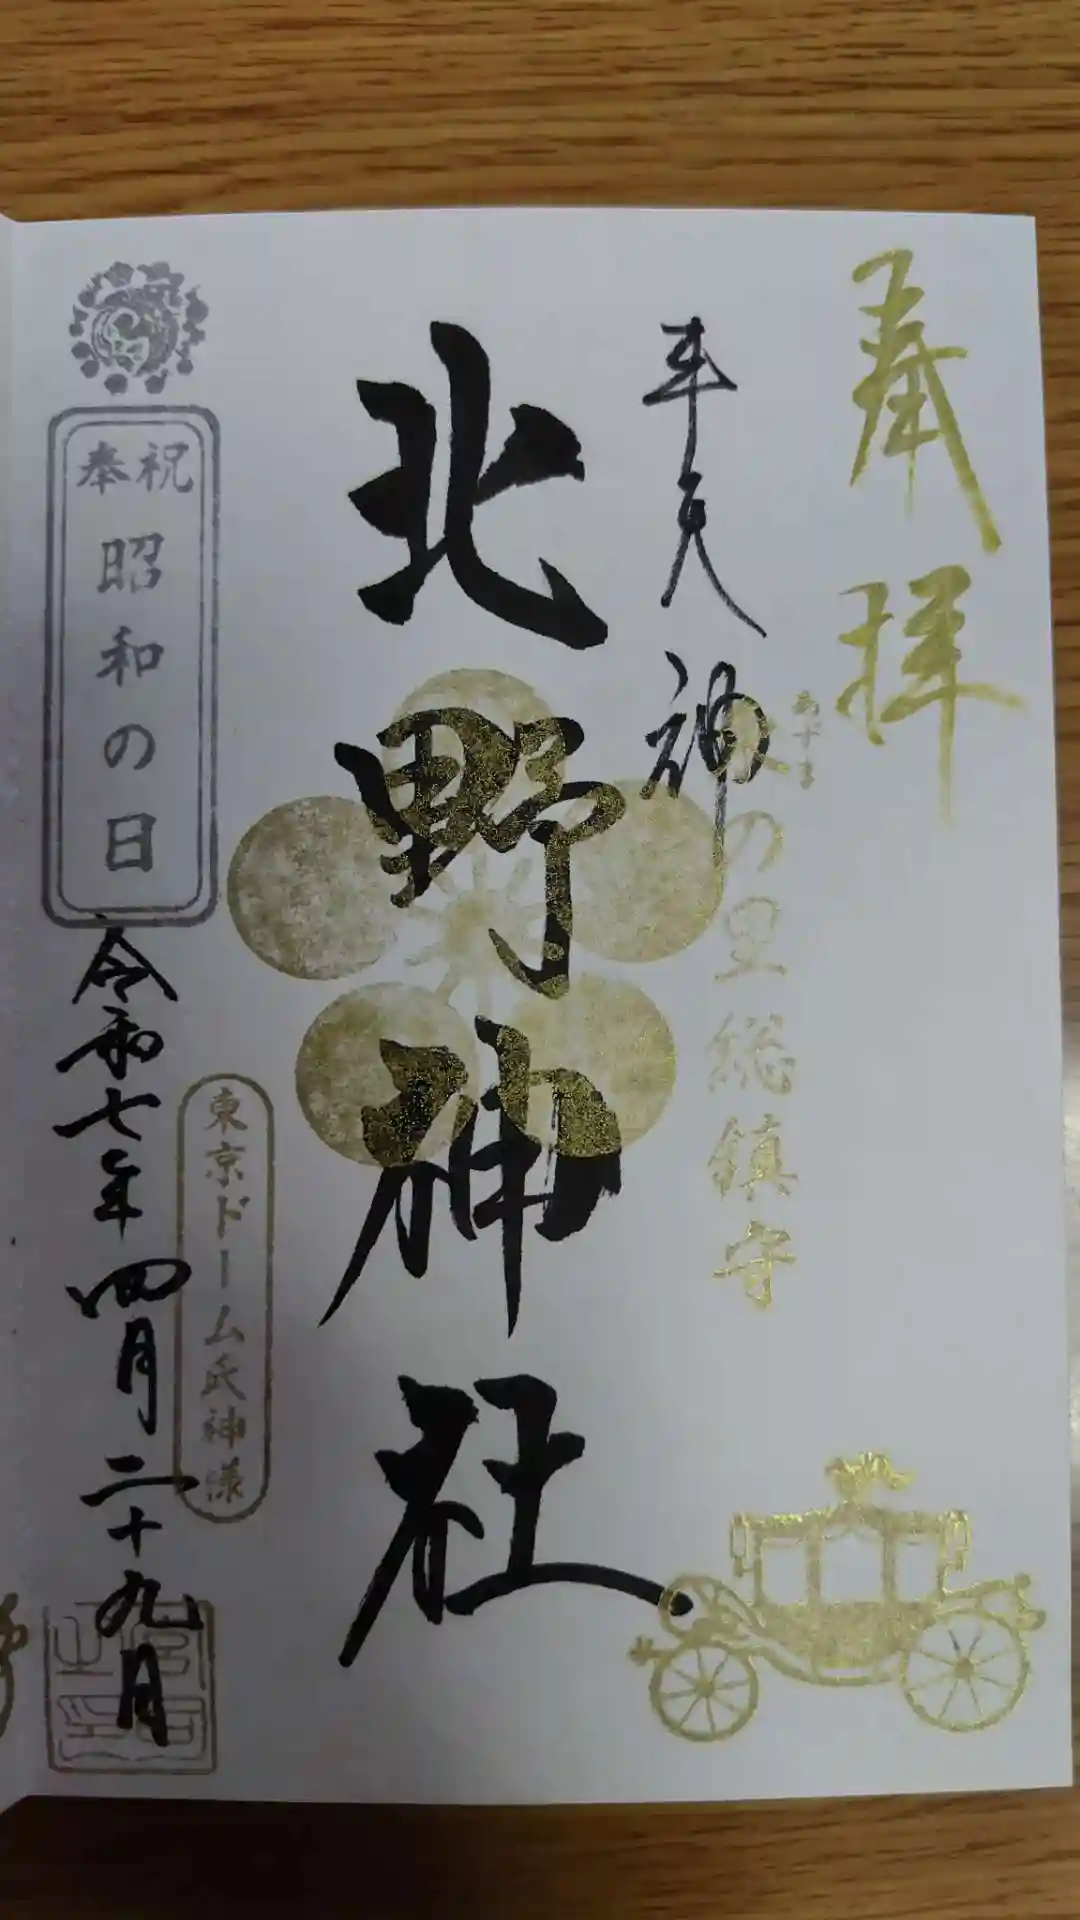 奉拝
牛天神
の里総鎮守
北野神社
奉祝
昭和の日
令和七年四月二十九日
東京ドーム氏神様